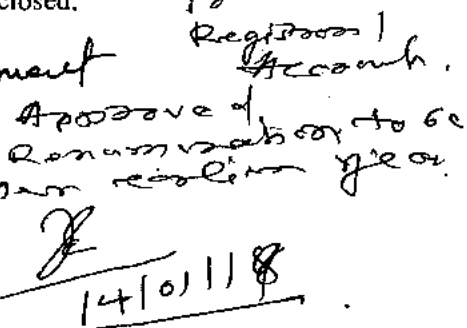 closed.
Registrar /
Account.
Approved
Renumeration to be
earlier year.
14/01/18